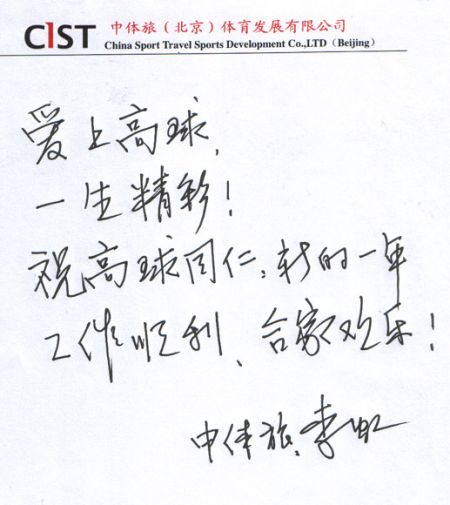 CIST
中体旅（北京）体育发展有限公司
China Sport Travel Sports Development Co.,LTD（Beijing）
爱上高球，
一生精彩！
祝高球同仁：新的一年
工作顺利、合家欢乐！
中体旅：李虹